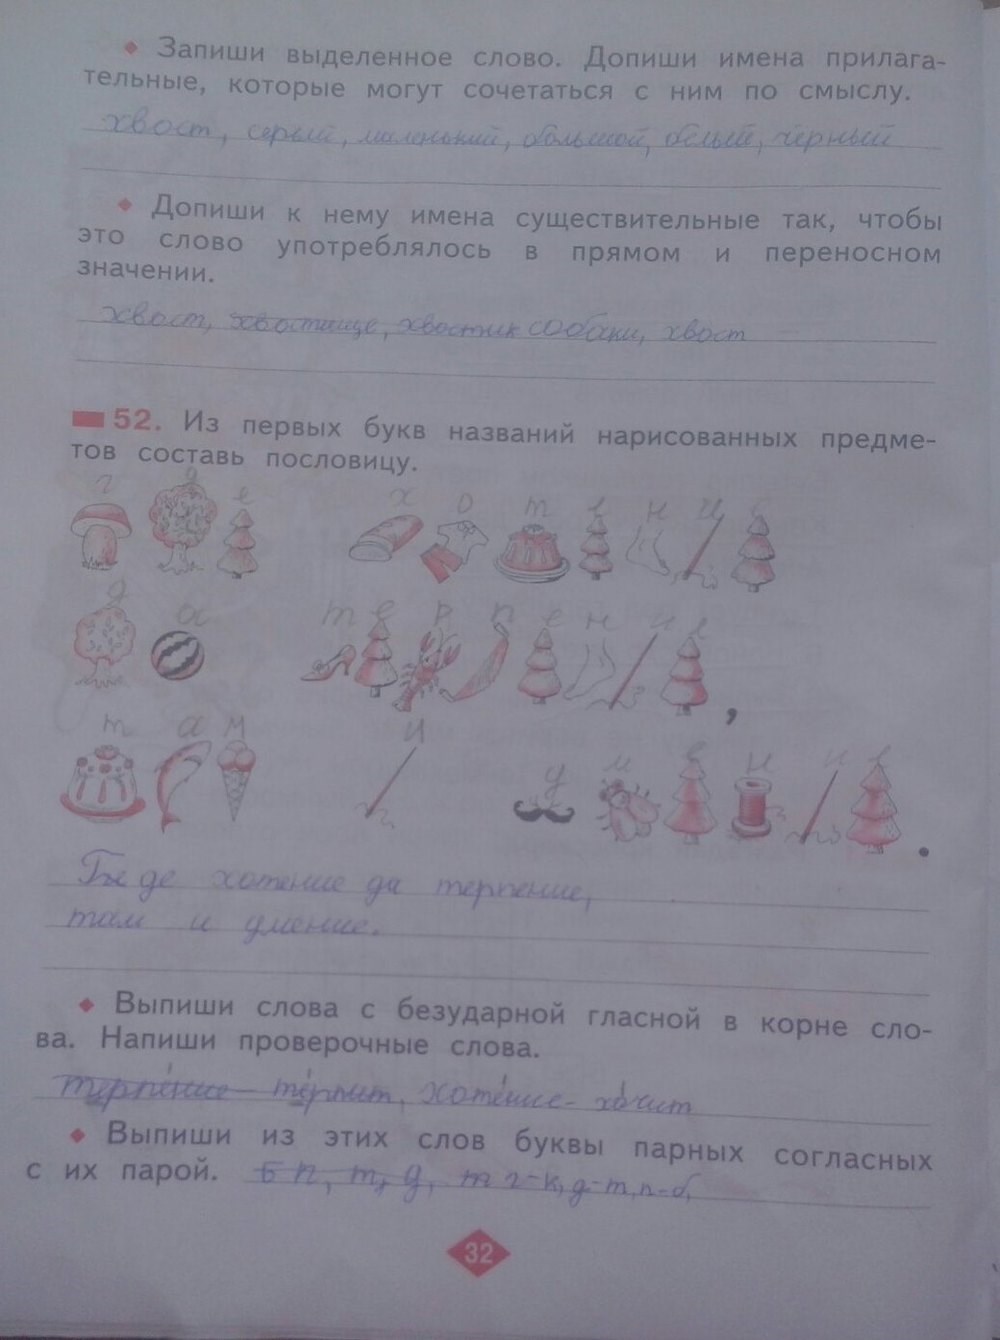 • Запиши выделенное слово. Допиши имена прилага-
тельные, которые могут сочетаться с ним по смыслу.
хвост, серый, маленький, большой, белый, чёрный
• Допиши к нему имена существительные так, чтобы
это слово употреблялось в прямом и переносном
значении.
хвост, хвостище, хвостик собаки, хвост
52. Из первых букв названий нарисованных предме-
тов составь пословицу.
г д е х о т е н и е
д а т е р п е н и е ,
т а м и у м е н и е .
Где хотение да терпение,
там и умение.
• Выпиши слова с безударной гласной в корне сло-
ва. Напиши проверочные слова.
терпе́ние – те́рпит, хоте́ние –
• Выпиши из этих слов буквы парных согласных
с их парой. п, т, д, т г-к, д-т, п-б,
32